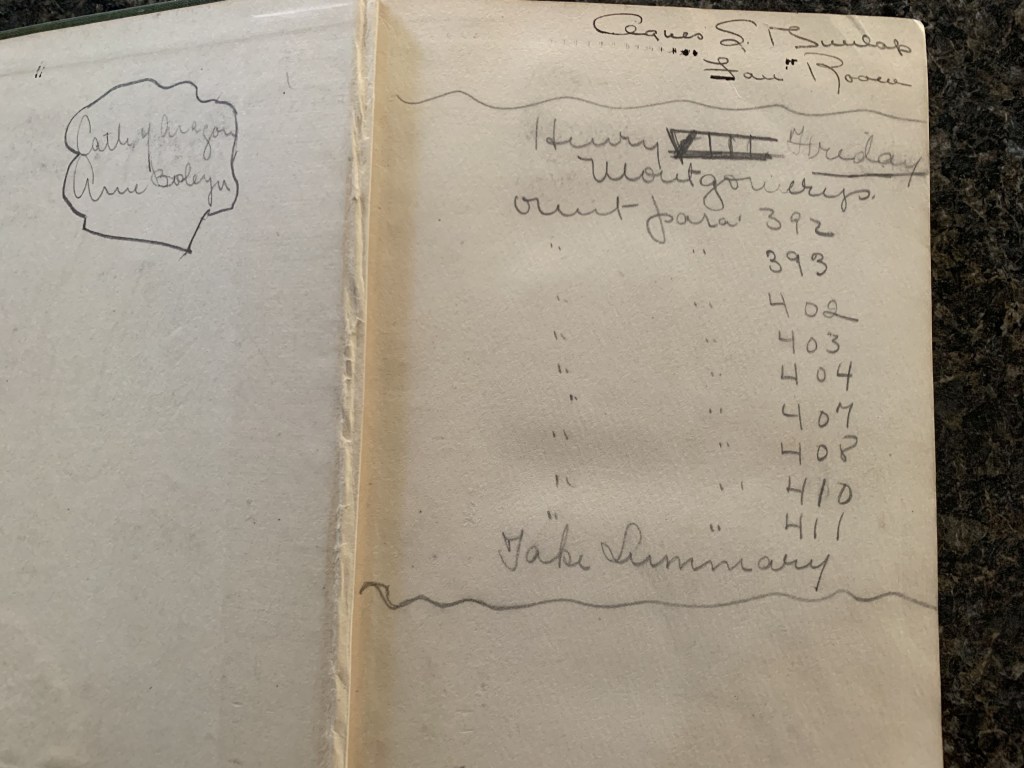 Cath of Aragon
Anne Boleyn
Agnes S. Dunlap
"Fau" Room
Henry VIII Friday
Montgomerys.
omit para 392
" " 393
" " 402
" " 403
" " 404
" " 407
" " 408
" " 410
" " 411
Take Summary